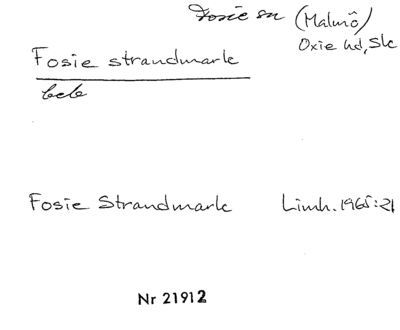 Fosie sn (Malmö)
Oxie hd, Sk
Fosie strandmark
beb
Fosie Strandmark Limh. 1965:21
Nr 21912